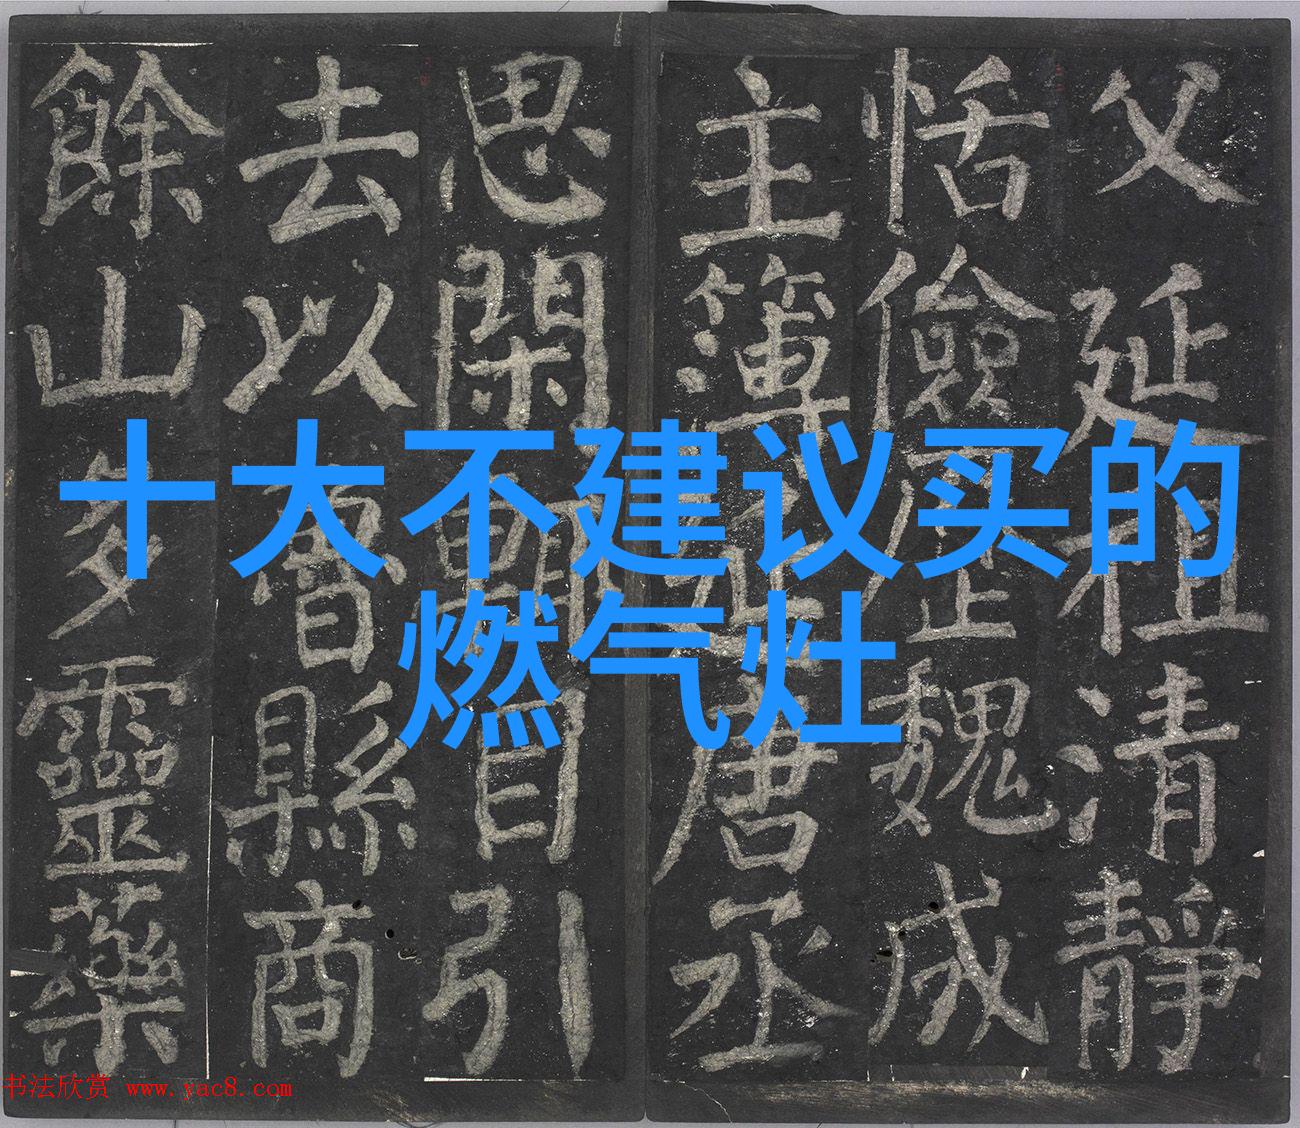 十大不建议买的
燃气灶
父延祖清靜
恬儉歷魏成
主簿延唐丞
思閑輒自引
去以魯縣商
餘山多靈藥
书法欣赏 www.yac8.com